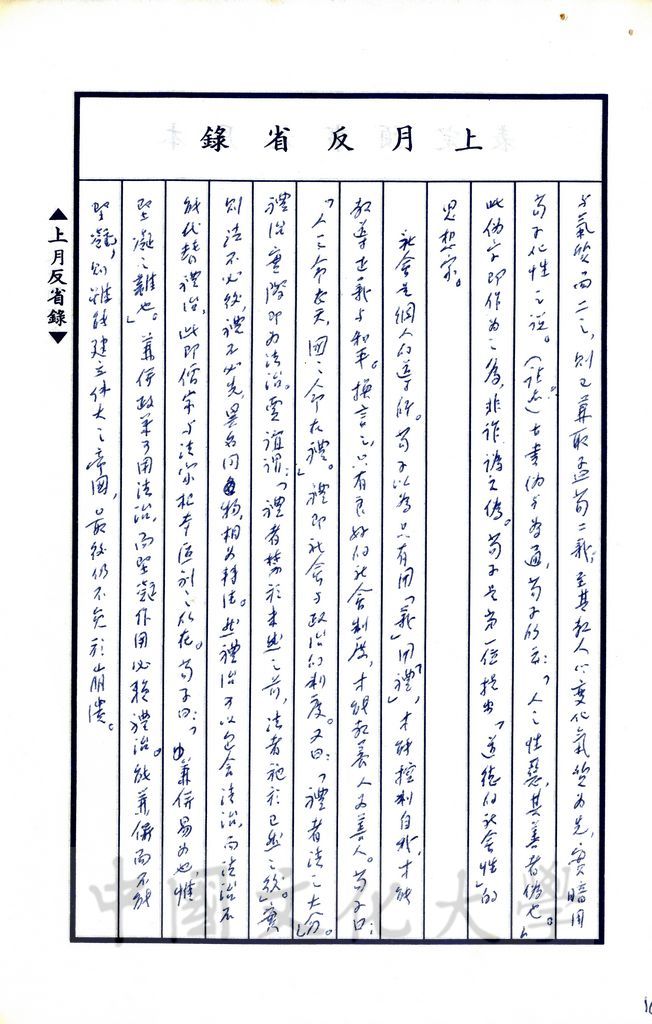 上月反省錄
▲上月反省錄▼
與氣質而二之，則又兼取孟荀二義，至其教人以變化氣質為先，實暗用
荀子化性之說。（註六）古書偽與為通，荀子所云：「人之性惡，其善者偽也」
此偽字即作為之為，非詐偽之偽。荀子是第一位提出「道德的社會性」的
思想家。
社會是個人的導師。荀子以為只有用「義」用「禮」，才能控制自我，才能
教導正義與和平。換言之只有良好的社會制度，才能教養人為善人。荀子曰：
「人之命在天，國之命在禮。」禮即社會與政治的制度。又曰：「禮者法之大分。」
禮治實際即為法治。賈誼謂：「禮者禁於未然之前，法者施於已然之後。」實
則法不必後，禮不必先，異名同物，相為輔佐。然禮治可以包含法治，而法治不
能代替禮治，此即儒家與法家根本區別之所在。荀子曰：「兼併易為也，惟
堅凝之難也。」兼併政策可用法治，而堅凝作用必賴禮治。能兼併而不能
堅凝，則雖能建立偉大之帝國，最後仍不免於崩潰。
中國文化大學